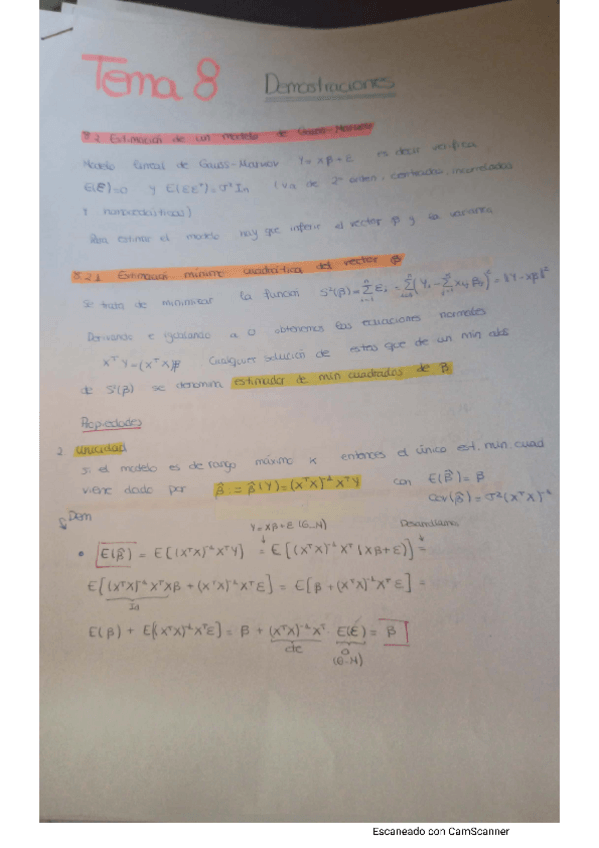 Tema 8 Demostraciones
8.2 Estimación de un modelo de Gauss-Markov
Modelo lineal de Gauss-Markov Y=Xβ+ε es decir verifica
E(ε)=0 y E(εε^T)=σ²In (va de 2º orden, centradas, incorreladas
y homocedásticas)
Para estimar el modelo hay que inferir el vector β y la varianza
8.2.1 Estimación mínimo cuadrática del vector β
Se trata de minimizar la función S²(β)=∑εi = ∑(Yi - ∑xij βj)² = ‖Y-Xβ‖²
Derivando e igualando a 0 obtenemos las ecuaciones normales
X^T Y=(X^T X)β Cualquier solución de estas que de un min abs
de S²(β) se denomina estimador de min cuadrados de β
Propiedades
Unicidad
Si el modelo es de rango máximo k entonces el único est. min. cuad
viene dado por β̂ = β̂(Y)=(X^TX)^-1 X^TY con E(β̂)=β
Cov(β̂)=σ²(X^TX)^-1
Dem
Y=Xβ+ε (G-M) Desarrollamos
• E(β̂) = E[(X^TX)^-1 X^TY] = E[(X^TX)^-1 X^T (Xβ+ε)] =
E[(X^TX)^-1 X^TXβ + (X^TX)^-1 X^Tε] = E[β+(X^TX)^-1 X^Tε] =
E(β) + E((X^TX)^-1 X^Tε] = β + (X^TX)^-1 X^T E(ε) = β
cte 0
(G-M)
Escaneado con CamScanner